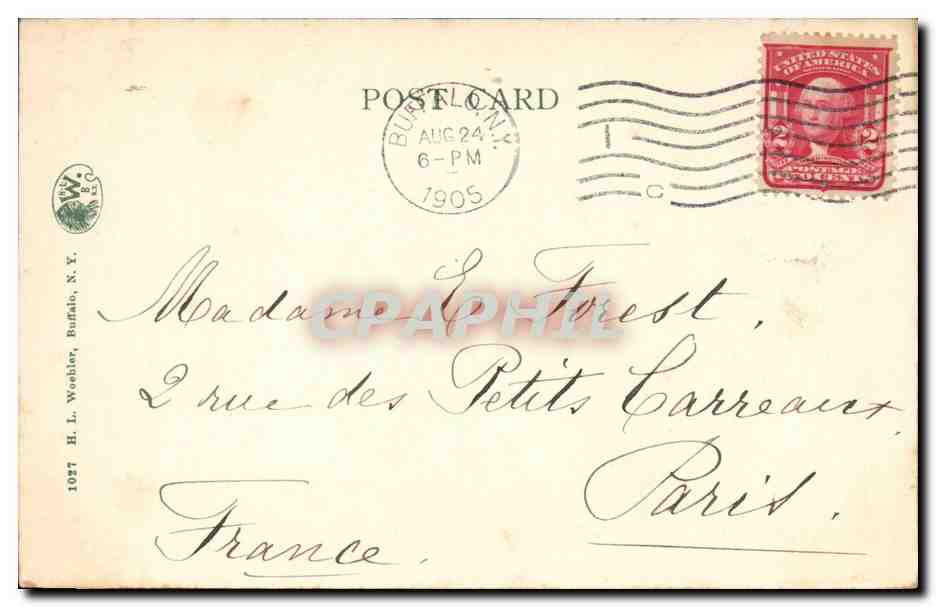 UNITED STATES
OF AMERICA
POST CARD
BUFFALO, N.Y.
AUG 24
6-PM
1905
2 2
POSTAGE
TWO CENTS
W.
Madame E Forest,
CPAPHIL
2 rue des Petits Carreaux,
Paris.
France.
1027 H. L. Woehler, Buffalo, N. Y.